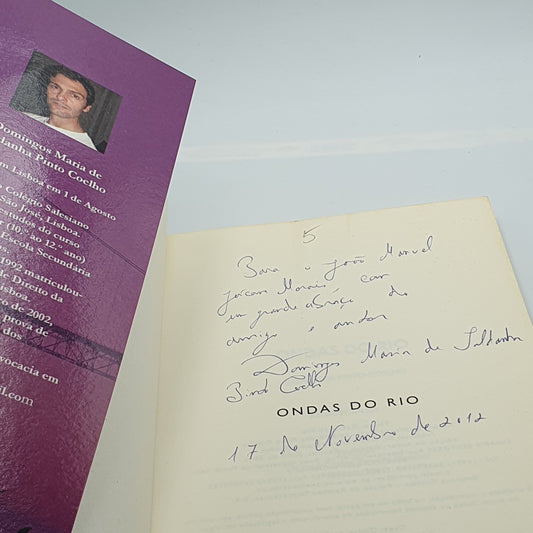 Domingos Maria de
danha Pinto Coelho
m Lisboa em 1 de Agosto
o Colégio Salesiano
São José, Lisboa.
estudos do curso
(10.º ao 12.º ano)
Escola Secundária
1992 matriculou-
de Direito da
isboa.
ro de 2002
prova de
dos
vocacia em
il.com
5
Para o João Manuel
Morais, com
um grande abraço do
amigo e autor
Domingos Maria de Saldanha
Pinto Coelho
ONDAS DO RIO
17 de Novembro de 2012